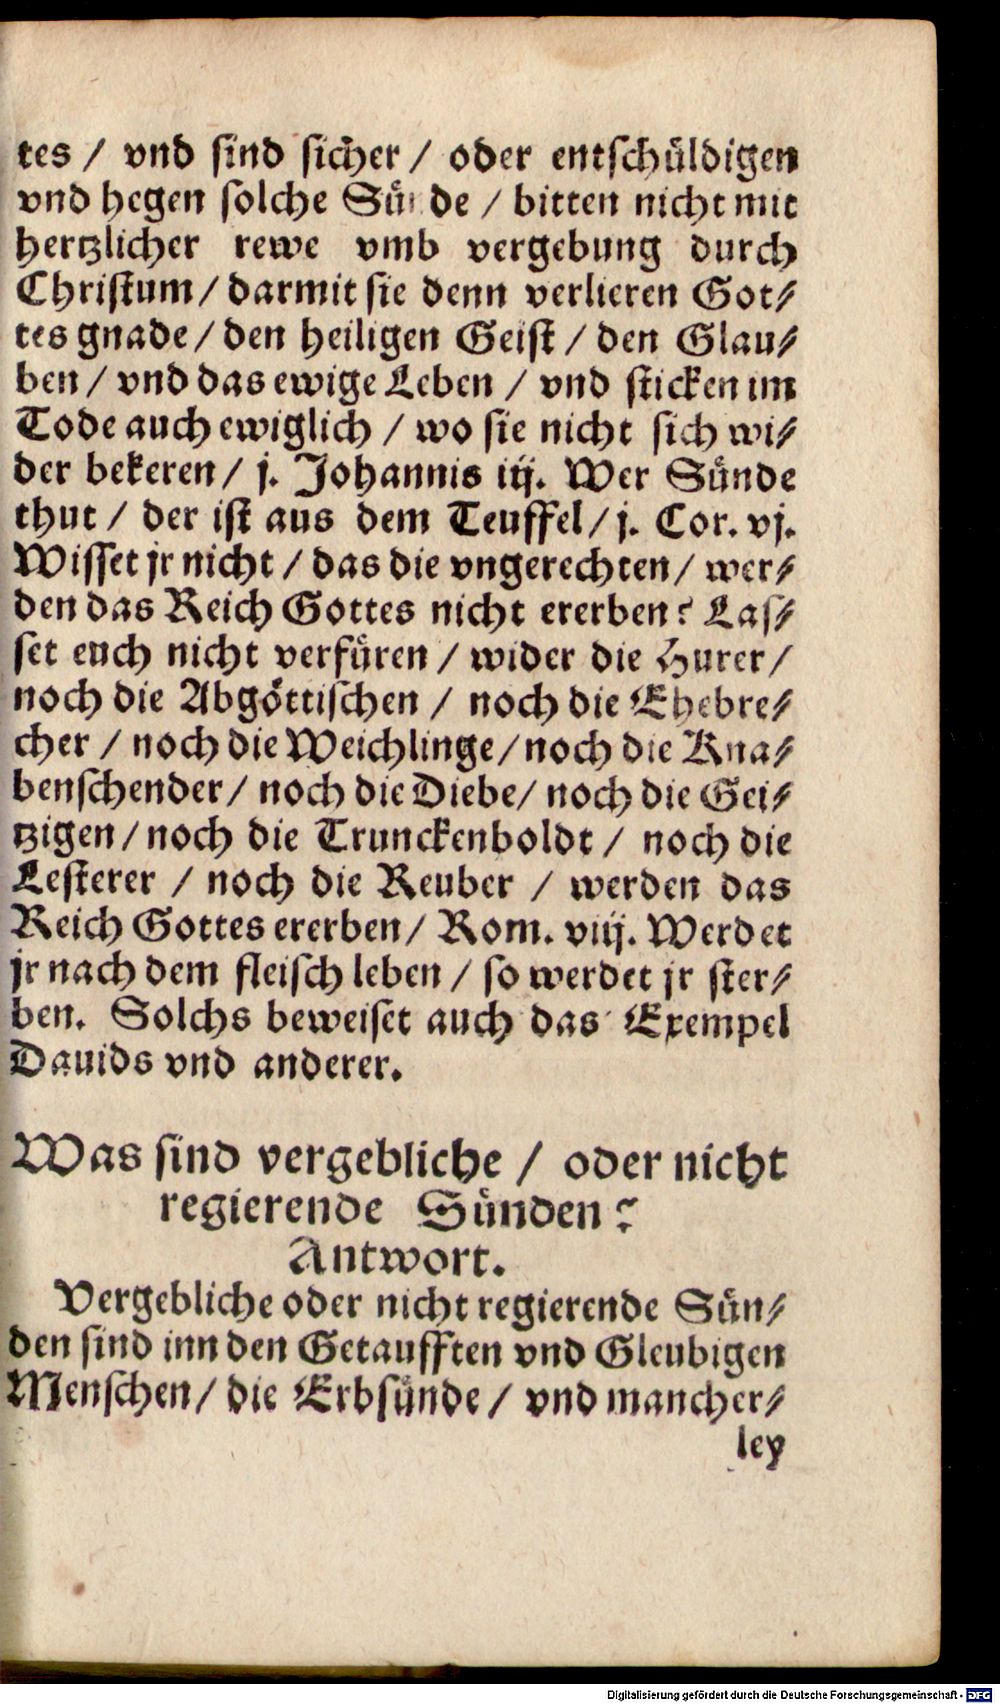 tes / vnd sind sicher / oder entschüldigen
vnd hegen solche Sünde / bitten nicht mit
hertzlicher rewe vmb vergebung durch
Christum / darmit sie denn verlieren Got⸗
tes gnade / den heiligen Geist / den Glau⸗
ben / vnd das ewige Leben / vnd sticken im
Tode auch ewiglich / wo sie nicht sich wi⸗
der bekeren / j. Johannis iij. Wer Sünde
thut / der ist aus dem Teuffel / j. Cor. vj.
Wisset jr nicht / das die vngerechten / wer⸗
den das Reich Gottes nicht ererben? Las⸗
set euch nicht verfüren / wider die Hurer /
noch die Abgöttischen / noch die Ehebre⸗
cher / noch die Weichlinge / noch die Kna⸗
benschender / noch die Diebe / noch die Gei⸗
tzigen / noch die Trunckenboldt / noch die
Lesterer / noch die Reuber / werden das
Reich Gottes ererben / Rom. viij. Werdet
jr nach dem fleisch leben / so werdet jr ster⸗
ben. Solchs beweiset auch das Exempel
Dauids vnd anderer.
Was sind vergebliche / oder nicht
regierende Sünden?
Antwort.
Vergebliche oder nicht regierende Sün⸗
den sind inn den Getaufften vnd Gleubigen
Menschen / die Erbsünde / vnd mancher⸗
ley
Digitalisierung gefördert durch die Deutsche Forschungsgemeinschaft - DFG